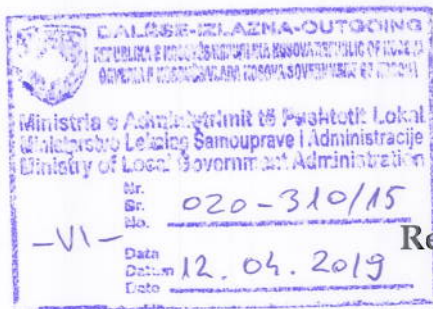 DALËSE-IZLAZNA-OUTGOING
REPUBLIKA E KOSOVËS/REPUBLIKA KOSOVA/REPUBLIC OF KOSOVO
Ministria e Administrimit të Pushtetit Lokal
Ministarstvo Lokalne Samouprave i Administracije
Ministry of Local Government Administration
Nr.
Br.
No. 020-310/15
-VI-
Data
Datum 12.04.2019
Date
Re